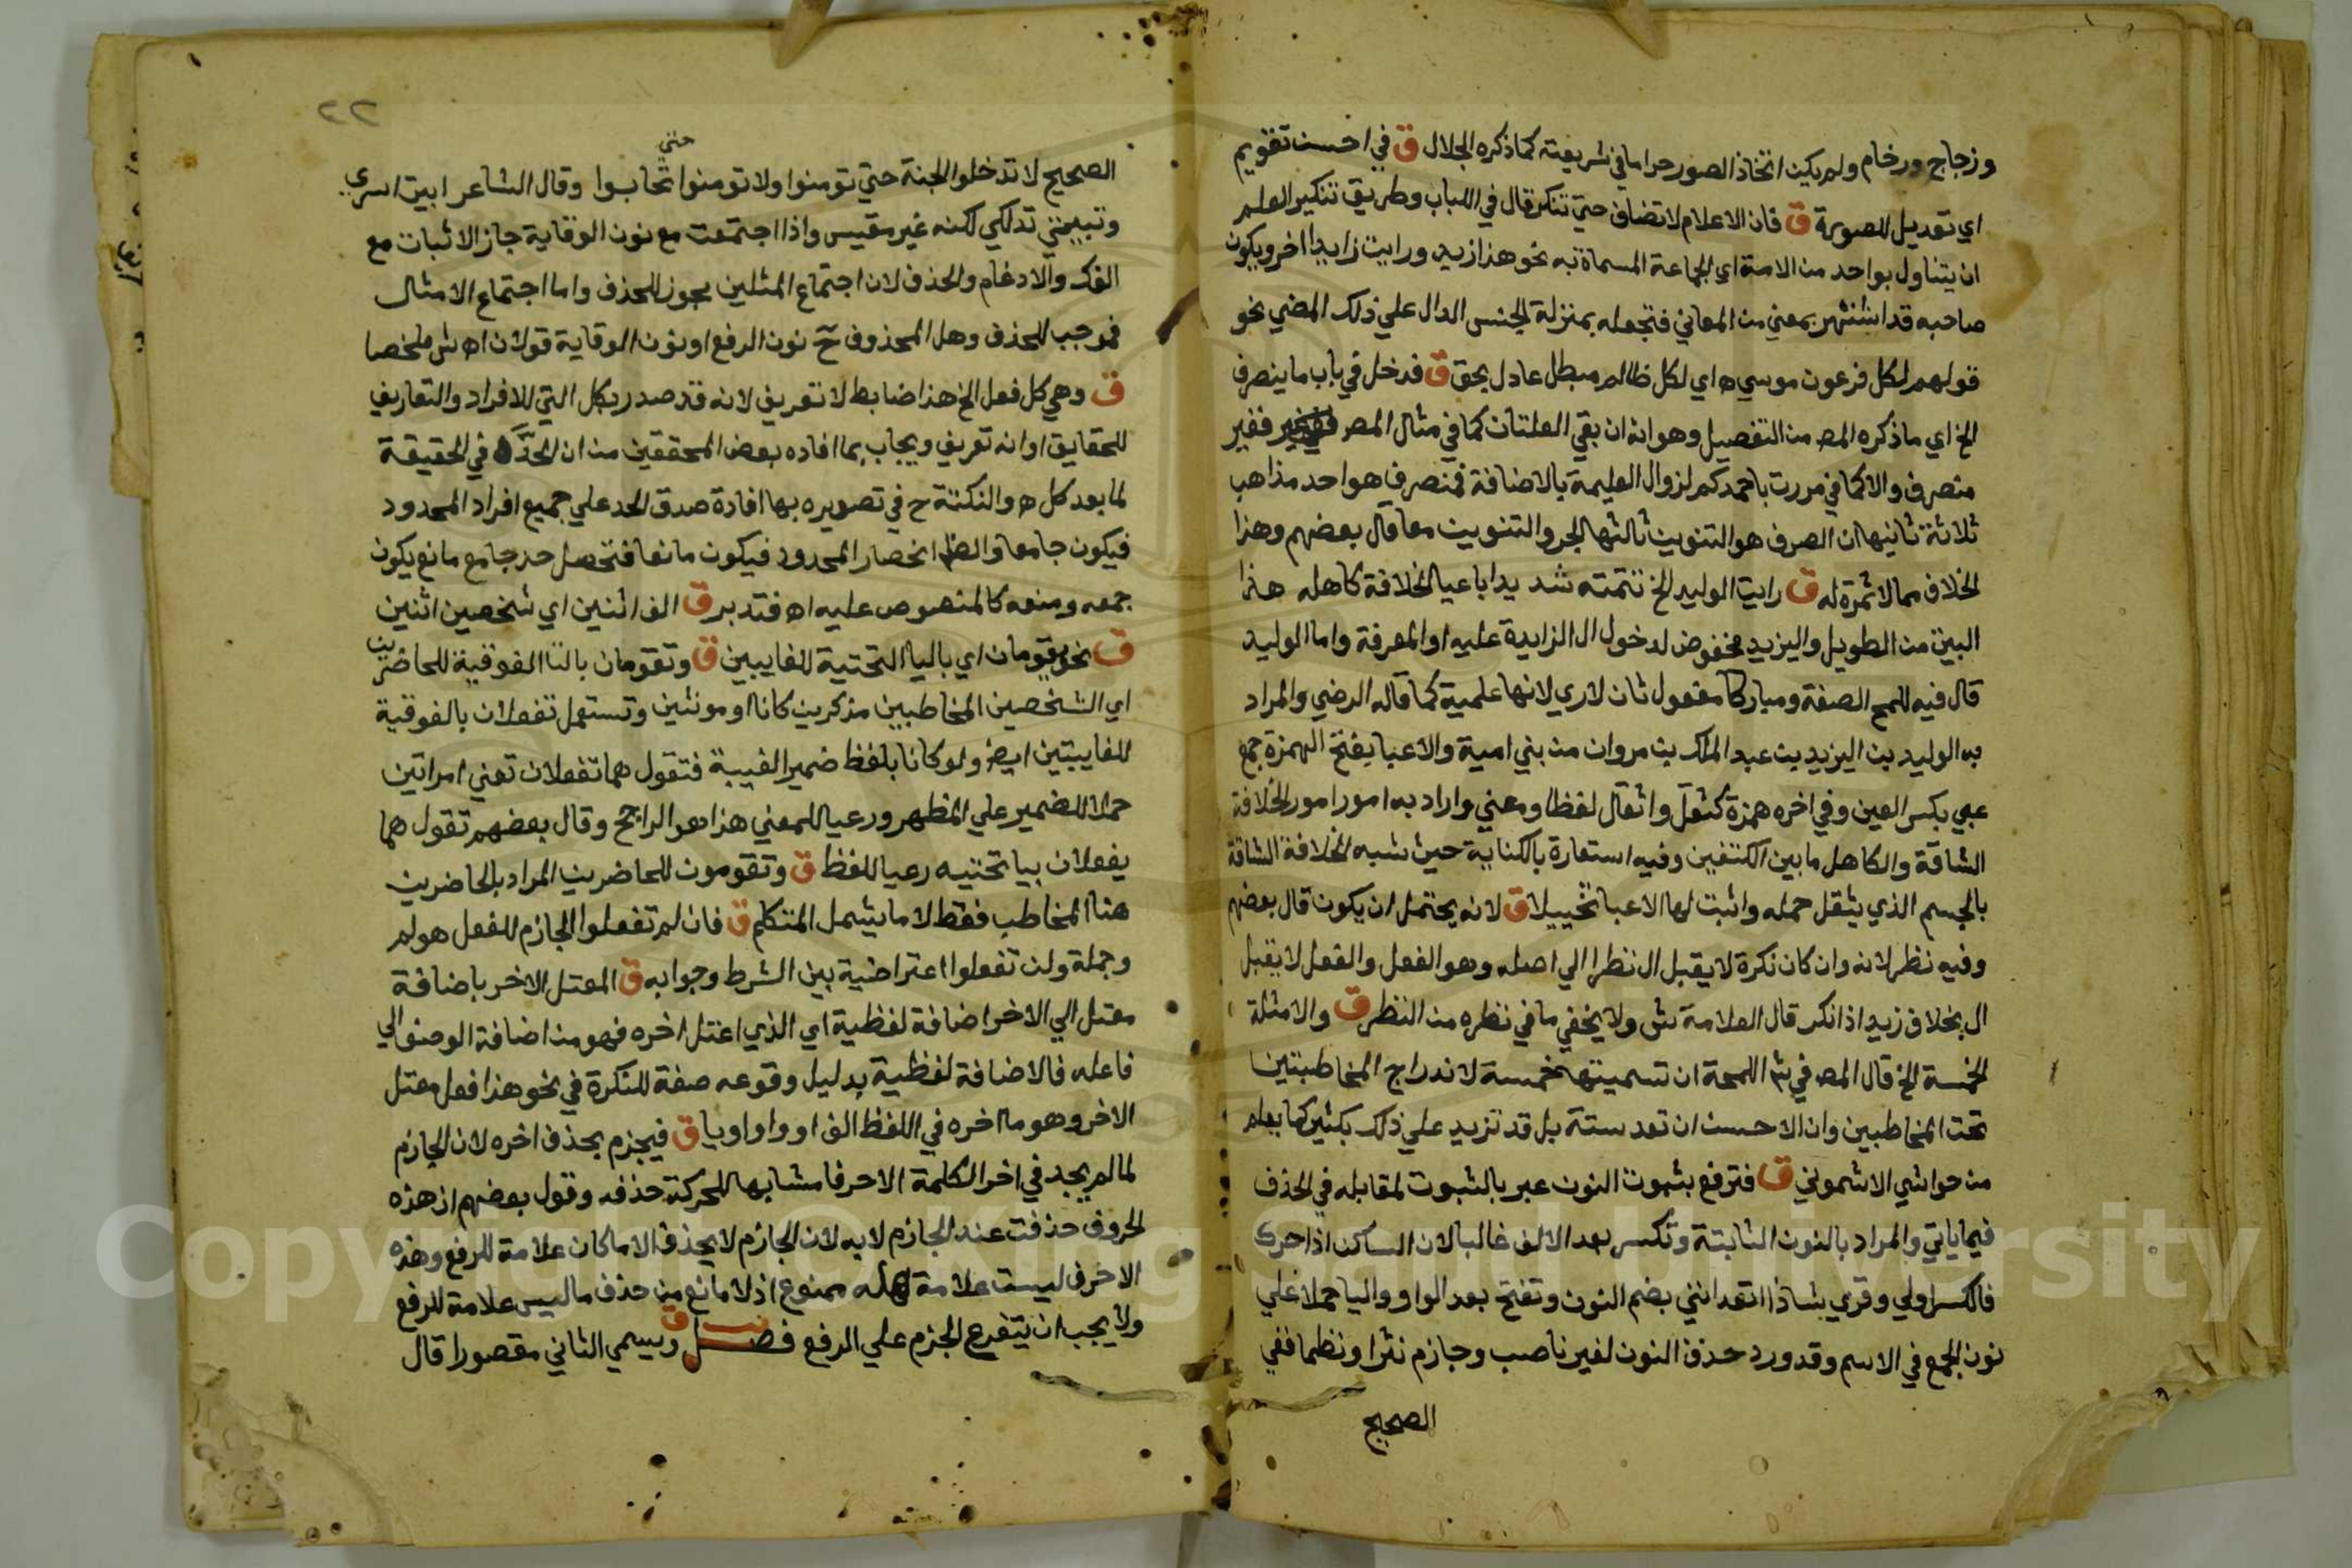 وزجاج ورخام ولم يكن اتخاذ الصور حراما في شريعته كما ذكره الجلال ق في احسن تقويم
اي تعديل للصورة ق فان الاعلام لا تضاف حتي تنكر قال في اللباب وطريق تنكير العلم
ان يتناول بواحد من الامة اي الجماعة المسماة به نحو هذا زيد ورايت زايدا اخر ويكون
صاحبه قد اشتهر بمعني من المعاني فتجعله بمنزلة الجنس الدال علي ذلك المضي نحو
قولهم لكل فرعون موسي ه اي لكل ظالم مبطل عادل بحق ق فدخل في باب ما ينصرف
الخ اي ما ذكره المص من التفصيل وهو انه ان بقي العلتان كما في مثال المص فغير
منصرف والا كما في مررت باحمدكم لزوال العليمة بالاضافة فمنصرف هو احد مذاهب
ثلاثة ثانيها ان الصرف هو التنوين ثالثها الجر والتنوين معا قال بعضهم وهذا
الخلاف مما لا ثمرة له ق رايت الوليد الخ تتمته شديدا باعبا الخلافة كاهله هذا
البيت من الطويل واليزيد مخفوض لدخول ال الزايدة عليه او المعرفة واما الوليد
قال فيه للمح الصفة ومباركا مفعول ثان لاري لانها علمية كما قاله الرضي والمراد
به الوليد بن اليزيد بن عبد الملك بن مروان من بني امية والاعبا بفتح الهمزة جمع
عبي بكسر العين وفي اخره همزة كثقل واثقال لفظا ومعني واراد به امورا مور الخلافة
الشاقة والكاهل ما بين الكتفين وفيه استعارة بالكناية حيث شبه الخلافة الشاقة
بالجسم الذي يثقل حمله واثبت لها الاعبا تخييلا ق لانه يحتمل ان يكون قال بعضهم
وفيه نظر لانه وان كان نكرة لا يقبل ال نظرا الي اصله وهو الفعل والفعل لا يقبل
ال بخلاف زيد اذا نكر قال العلامة ش ولا يخفي ما في نظره من النظر ق والامثلة
الخمسة الخ قال المص في ش اللمحة ان تسميتها خمسة لاندراج المخاطبتين
تحت المخاطبين وان الاحسن ان تعد ستة بل قد تزيد علي ذلك بكثير كما يعلم
من حواشي الاشموني ق فترفع بثبوت النون عبر بالثبوت لمقابله في الحذف
فيما ياتي والمراد بالنون الثابتة وتكسر بعد الالف غالبا لان الساكن اذا حرك
فالكسر اولي وقري شاذا اتعدانني بضم النون وتفتح بعد الواو واليا حملا علي
نون الجمع في الاسم وقد ورد حذف النون لغير ناصب وجازم نثرا ونظما ففي
الصحيح
٢٢
حتي
الصحيح لا تدخلوا الجنة حتي تومنوا ولا تومنوا تحابوا وقال الشاعر ابيت اسري
وتبيتي تدلكي لكنه غير مقيس واذا اجتمعت مع نون الوقاية جاز الاثبات مع
الفك والادغام والحذف لان اجتماع المثلين يجوز للحذف واما اجتماع الامثال
فموجب للحذف وهل المحذوف ح نون الرفع او نون الوقاية قولان اه ش ملخصا
ق وهي كل فعل الخ هذا ضابط لا تعريف لانه قد صدر بكل التي للافراد والتعاريف
للحقايق او انه تعريف ويجاب بما افاده بعض المحققين من ان الحد في الحقيقة
لما بعد كل ه والنكتة ح في تصويره بها افادة صدق الحد علي جميع افراد المحدود
فيكون جامعا والظ انحصار المحدود فيكون مانعا فتحصل حد جامع مانع يكون
جمعه ومنعه كالمنصوص عليه اه فتدبر ق الف اثنين اي شخصين اثنين
ق نحو يقومان اي باليا التحتية للغايبين ق وتقومان بالتا الفوقية للحاضرين
اي الشخصين المخاطبين مذكرين كانا او مونثين وتستعمل تفعلان بالفوقية
للغايبتين ايض ولو كانا بلفظ ضمير الغيبة فتقول هما تفعلان تعني امراتين
حملا للضمير علي المظهر ورعيا للمعني هذا هو الراجح وقال بعضهم تقول هما
يفعلان بيا تحتيه رعيا للفظ ق وتقومون للحاضرين المراد بالحاضرين
هنا المخاطب فقط لا ما يشمل المتكلم ق فان لم تفعلوا الجازم للفعل هو لم
وجملة ولن تفعلوا اعتراضية بين الشرط وجوابه ق المعتل الاخر باضافة
معتل الي الاخر اضافة لفظية اي الذي اعتل اخره فهو من اضافة الوصف الي
فاعله فالاضافة لفظية بدليل وقوعه صفة للنكرة في نحو هذا فعل معتل
الاخر وهو ما اخره في اللفظ الف او واو او يا ق فيجزم بحذف اخره لان الجازم
لما لم يجد في اخر الكلمة الا حرفا مشابها للحركة حذفه وقول بعضهم ان هذه
الحروف حذفت عند الجازم لا به لان الجازم لا يحذف الا ما كان علامة للرفع وهذه
الاحرف ليست علامة له ممنوع اذ لا مانع من حذف ما ليس علامة للرفع
ولا يجب ان يتفرع الجزم علي الرفع فصل ق ويسمي الثاني مقصورا قال
Copyright © King Saud University